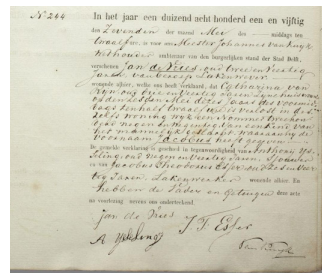 N° 244
In het jaar een duizend acht honderd een en vijftig
den Zevenden der maand Mei des middags ten
twaalf ure, is voor ons Meester Johannes van Kuyk
Wethouder ambtenaar van den burgerlijken stand der Stad Delft,
verschenen Jan de Vries, oud twee en veertig
jaren, van beroep Lakenwever
wonende alhier, welke ons heeft verklaard, dat Catharina van
Rijn, oud drie en veertig jaren, zijne huisvrouw
op den zesden Mei dezes jaars des voormid-
dags ten half twaalf ure, is verlost in de
zelfs woning wijk een nommer twee hon-
derd negen en tachtig, van een kind van
het mannelijk geslacht, waaraan zij den
voornaam Jacobus heeft gegeven.
De gemelde verklaring is geschied in tegenwoordigheid van Anthony Ys-
seling, oud negen en veertig jaren, Schoenmaker
en van Jacobus Theodorus Esser, oud zes en veer-
tig jaren, Lakenwerker wonende alhier. En
hebben de Vader en Getuigen deze acte
na voorlezing nevens ons onderteekend.
Jan de Vries
J. T. Esser
A Ysseling
van Kuyk